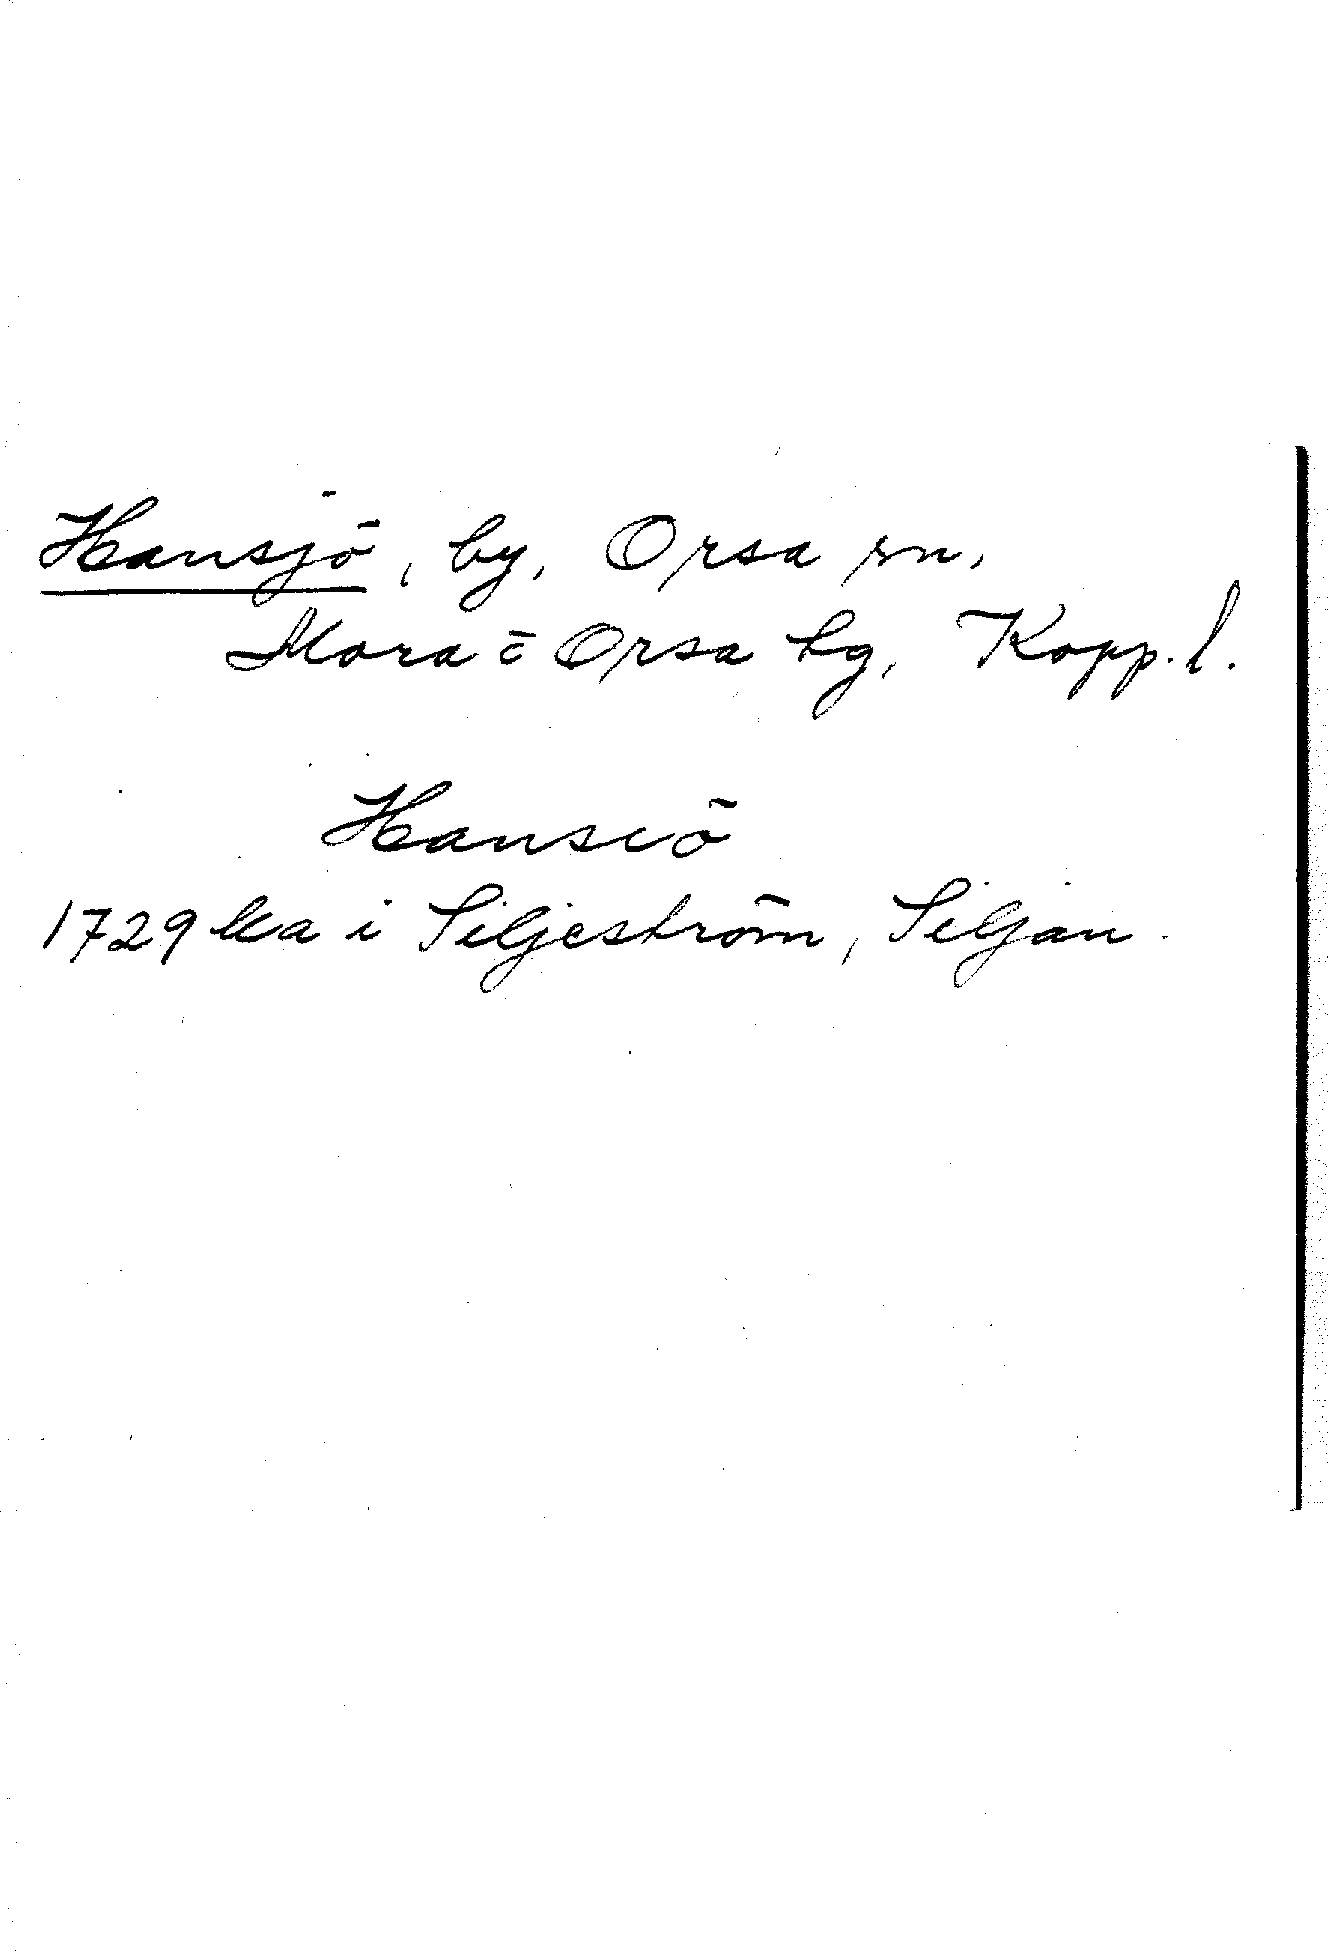 Hansjö, by, Orsa sn,
Mora o Orsa tg, Kopp. l.
Hansiö
1729 ka i Siljeström, Siljan.